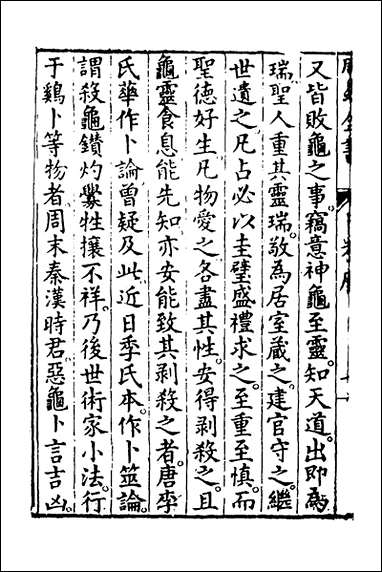 又皆敗龜之事。竊意神龜至靈。知天道。出即為
瑞聖人重其靈瑞。敬為居室藏之。建官守之。繼
世遺之。凡占必以圭璧盛禮求之。至重至慎。而
聖德好生凡物愛之各盡其性。安得剥殺之。且
龜靈食息能先知亦安能致其剥殺之者。唐李
氏華作卜論曾疑及此近日季氏本作卜筮論。
謂殺龜鑽灼釁牲攘不祥。乃後世術家小法。行
于鷄卜等物者周末秦漢時君惡龜卜言吉凶。